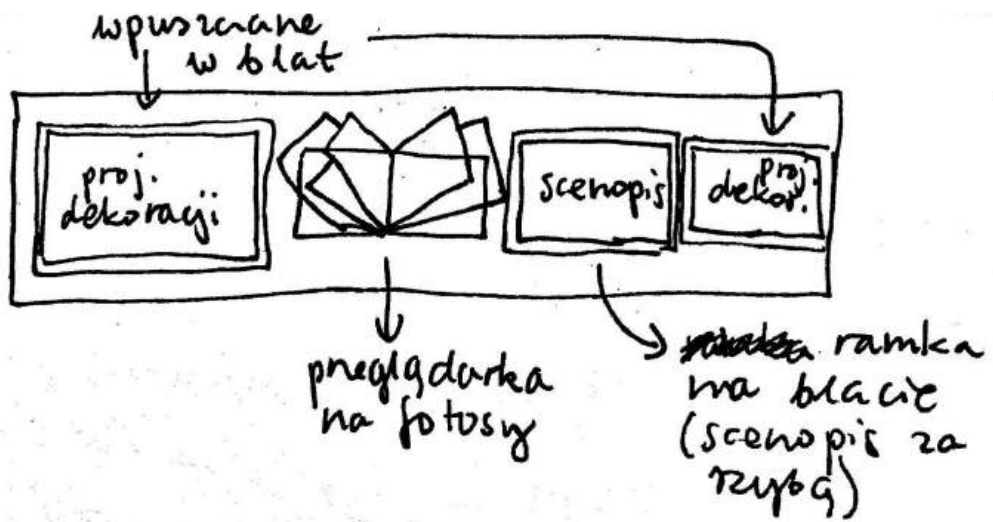 wpuszczane
w blat
proj.
dekoracji
scenopis
proj.
dekor.
przeglądarka
na fotosy
ramka
na blacie
(scenopis za
szybą)